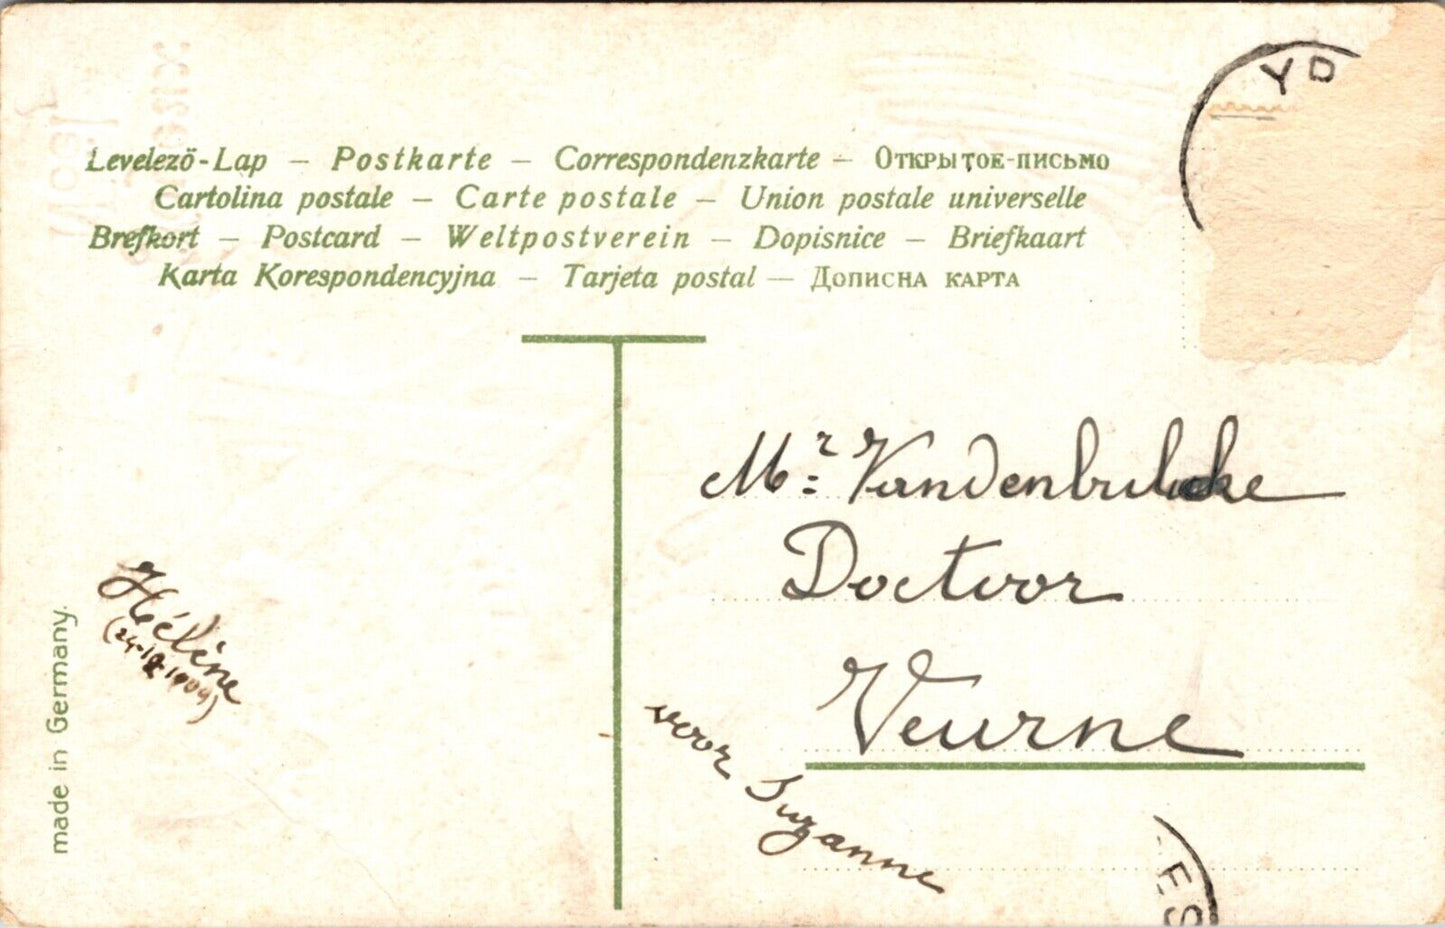 Levelező-Lap – Postkarte – Correspondenzkarte – Открытое-письмо
Cartolina postale – Carte postale – Union postale universelle
Brefkort – Postcard – Weltpostverein – Dopisnice – Briefkaart
Karta Korespondencyjna – Tarjeta postal – Дописна карта
YD
Mr Vandenbulcke
Doctoor
Veurne
voor Suzanne
Hélène
made in Germany.
ES